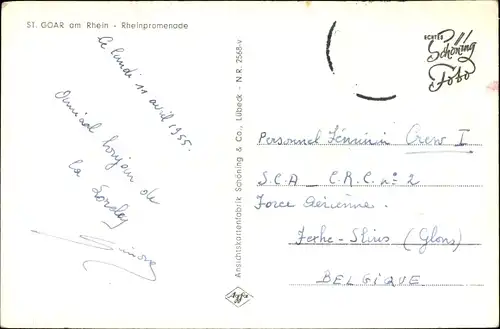 ST. GOAR am Rhein - Rheinpromenade
Ce lundi 11 avril 1955.
Amical bonjour de
la Loreley
Simone
Ansichtskartenfabrik Schöning & Co., Lübeck - NR. 2568-v
Agfa
ECHTES
Schöning
Foto
Personnel Féminin Crew I
S.C.A _ C.R.C. n° 2
Force Aérienne.
Fexhe-Slins (Glons)
BELGIQUE